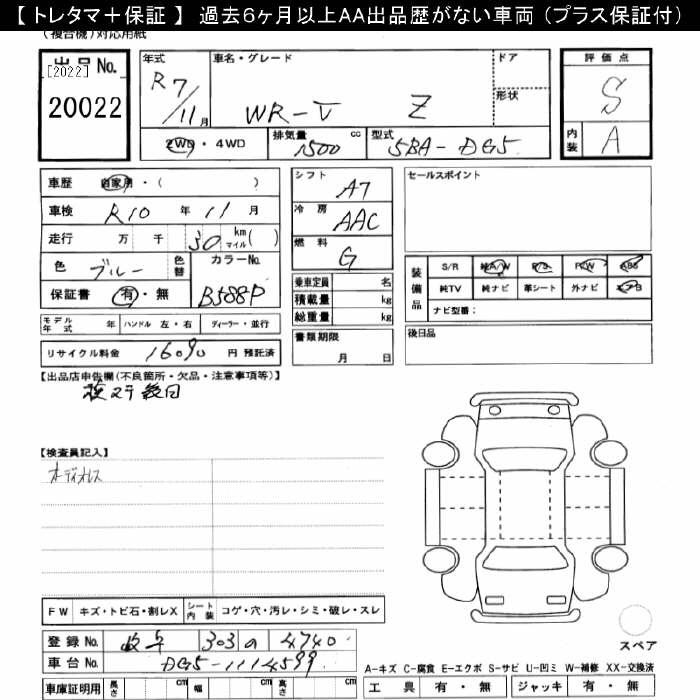 【トレタマ＋保証 】 過去６ヶ月以上AA出品歴がない車両（プラス保証付）
(複合機)対応用紙
出品No.
[2022]
20022
年式
R7/11月
車名・グレード
WR-V Z
ドア
形状
評価点
S
内装
A
2WD・4WD
排気量
1500 cc
型式
5BA-DG5
車歴
自家用・( )
車検
R10 年 11 月
走行
万 千 30 km マイル( )
色
ブルー
色替
カラーNo.
B588P
保証書
有・無
シフト
A7
冷房
AAC
燃料
G
乗車定員 名
積載量 kg
総重量 kg
セールスポイント
装備品
S/R 純A/W P/S P/W ABS
純TV 純ナビ 革シート 外ナビ エアB
ナビ型番:
モデル年式 年 ハンドル 左・右 ディーラー・並行
リサイクル料金 16090 円 預託済
書類期限
月 日
後日品
【出品店申告欄(不良箇所・欠品・注意事項等)】
【検査員記入】
オーディオレス
FW キズ・トビ石・割レX シート内装 コゲ・穴・汚レ・シミ・破レ・スレ
登録No. 岐阜 303 の 4740
車台No. DG5-1114599
車庫証明用 長さ cm 幅 cm 高さ cm
スペア
A-キズ C-腐食 E-エクボ S-サビ U-凹ミ W-補修 XX-交換済
工具 有・無 ジャッキ 有・無